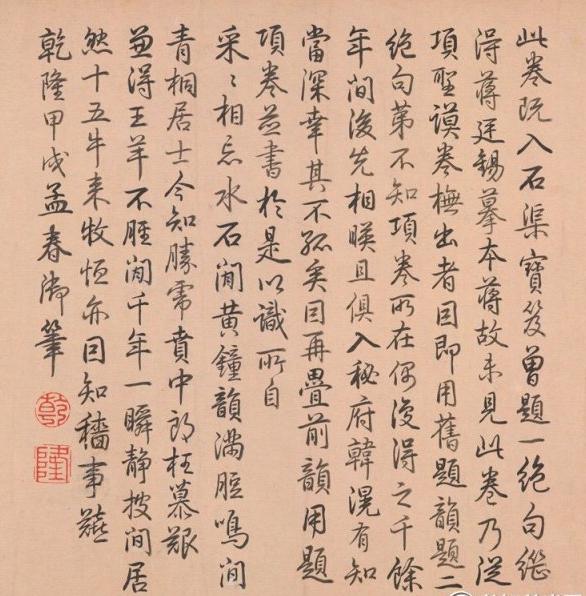 此卷既入石渠寶笈曾題一絶句繼
得蔣廷錫摹本蔣故未見此卷乃從
項聖謨卷橅出者因即用舊題韻題二
絶句第不知項卷所在偶復得之千餘
年間後先相暎且俱入秘府韓滉有知
當深幸其不孤矣因再疊前韻用題
項卷並書於是以識所自
采〻相忘水石間黄鐘韻滿脰鳴間
青桐居士今知勝賁中郎枉慕艱
並得王羊不脛間千年一瞬靜披間居
然十五牛来牧恒亦因知穡事
乾隆甲戌孟春御筆
乾
隆